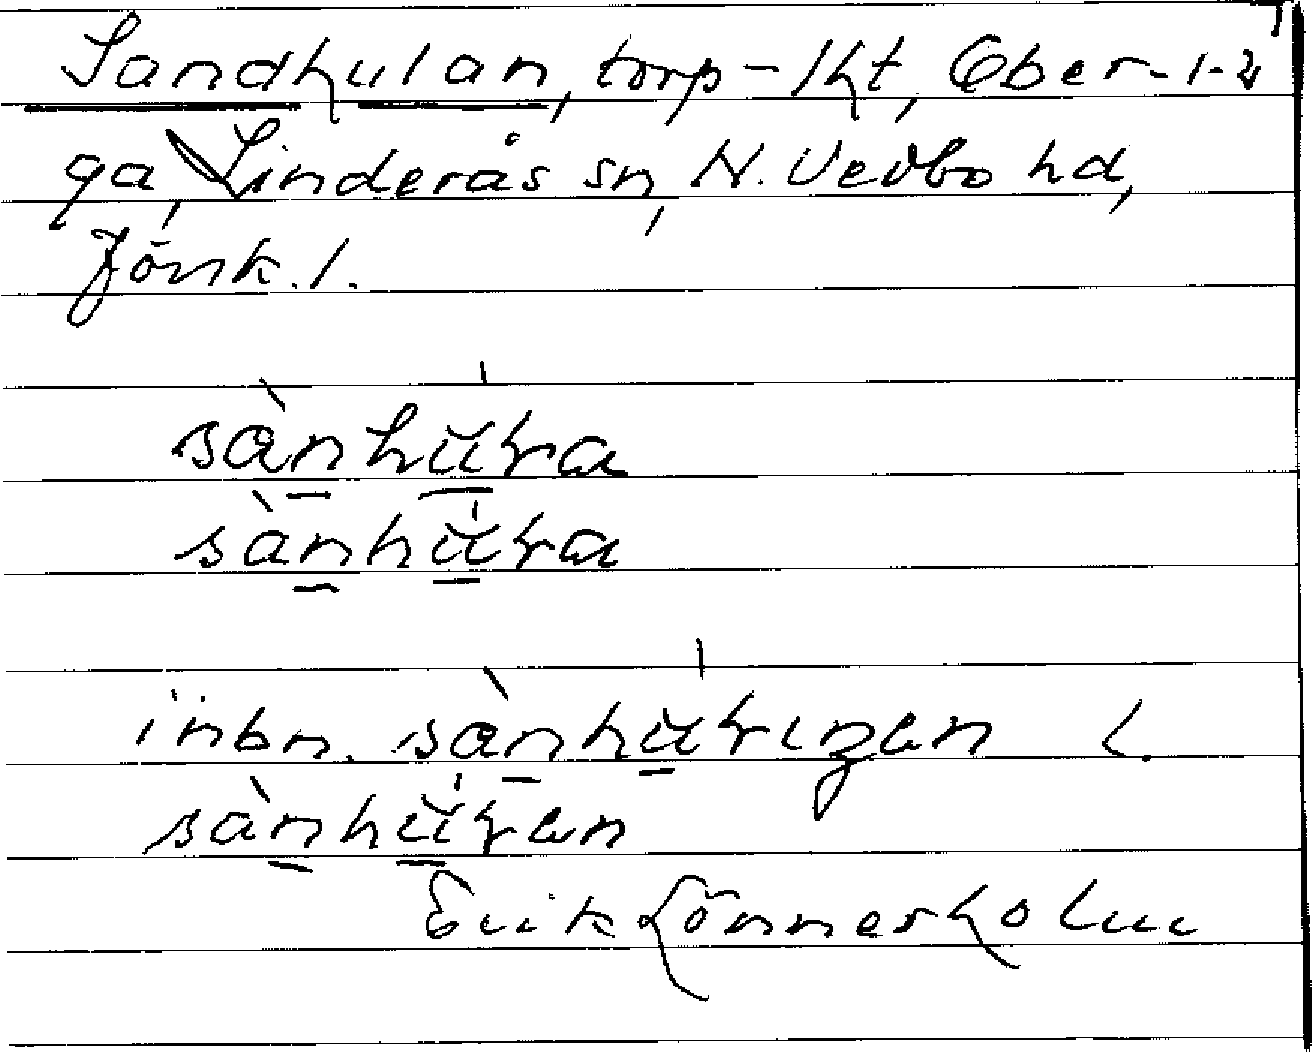 Sandhulan, torp – lht, Ober-
ga, Linderås sn, N. Vedbo hd,
Jönk. l.
sànhu̇ɫa
sànhu̇ɫa
inbn. sànhu̇ɫıŋan l.
sànhu̇ɫan
Erik Lönnerholm